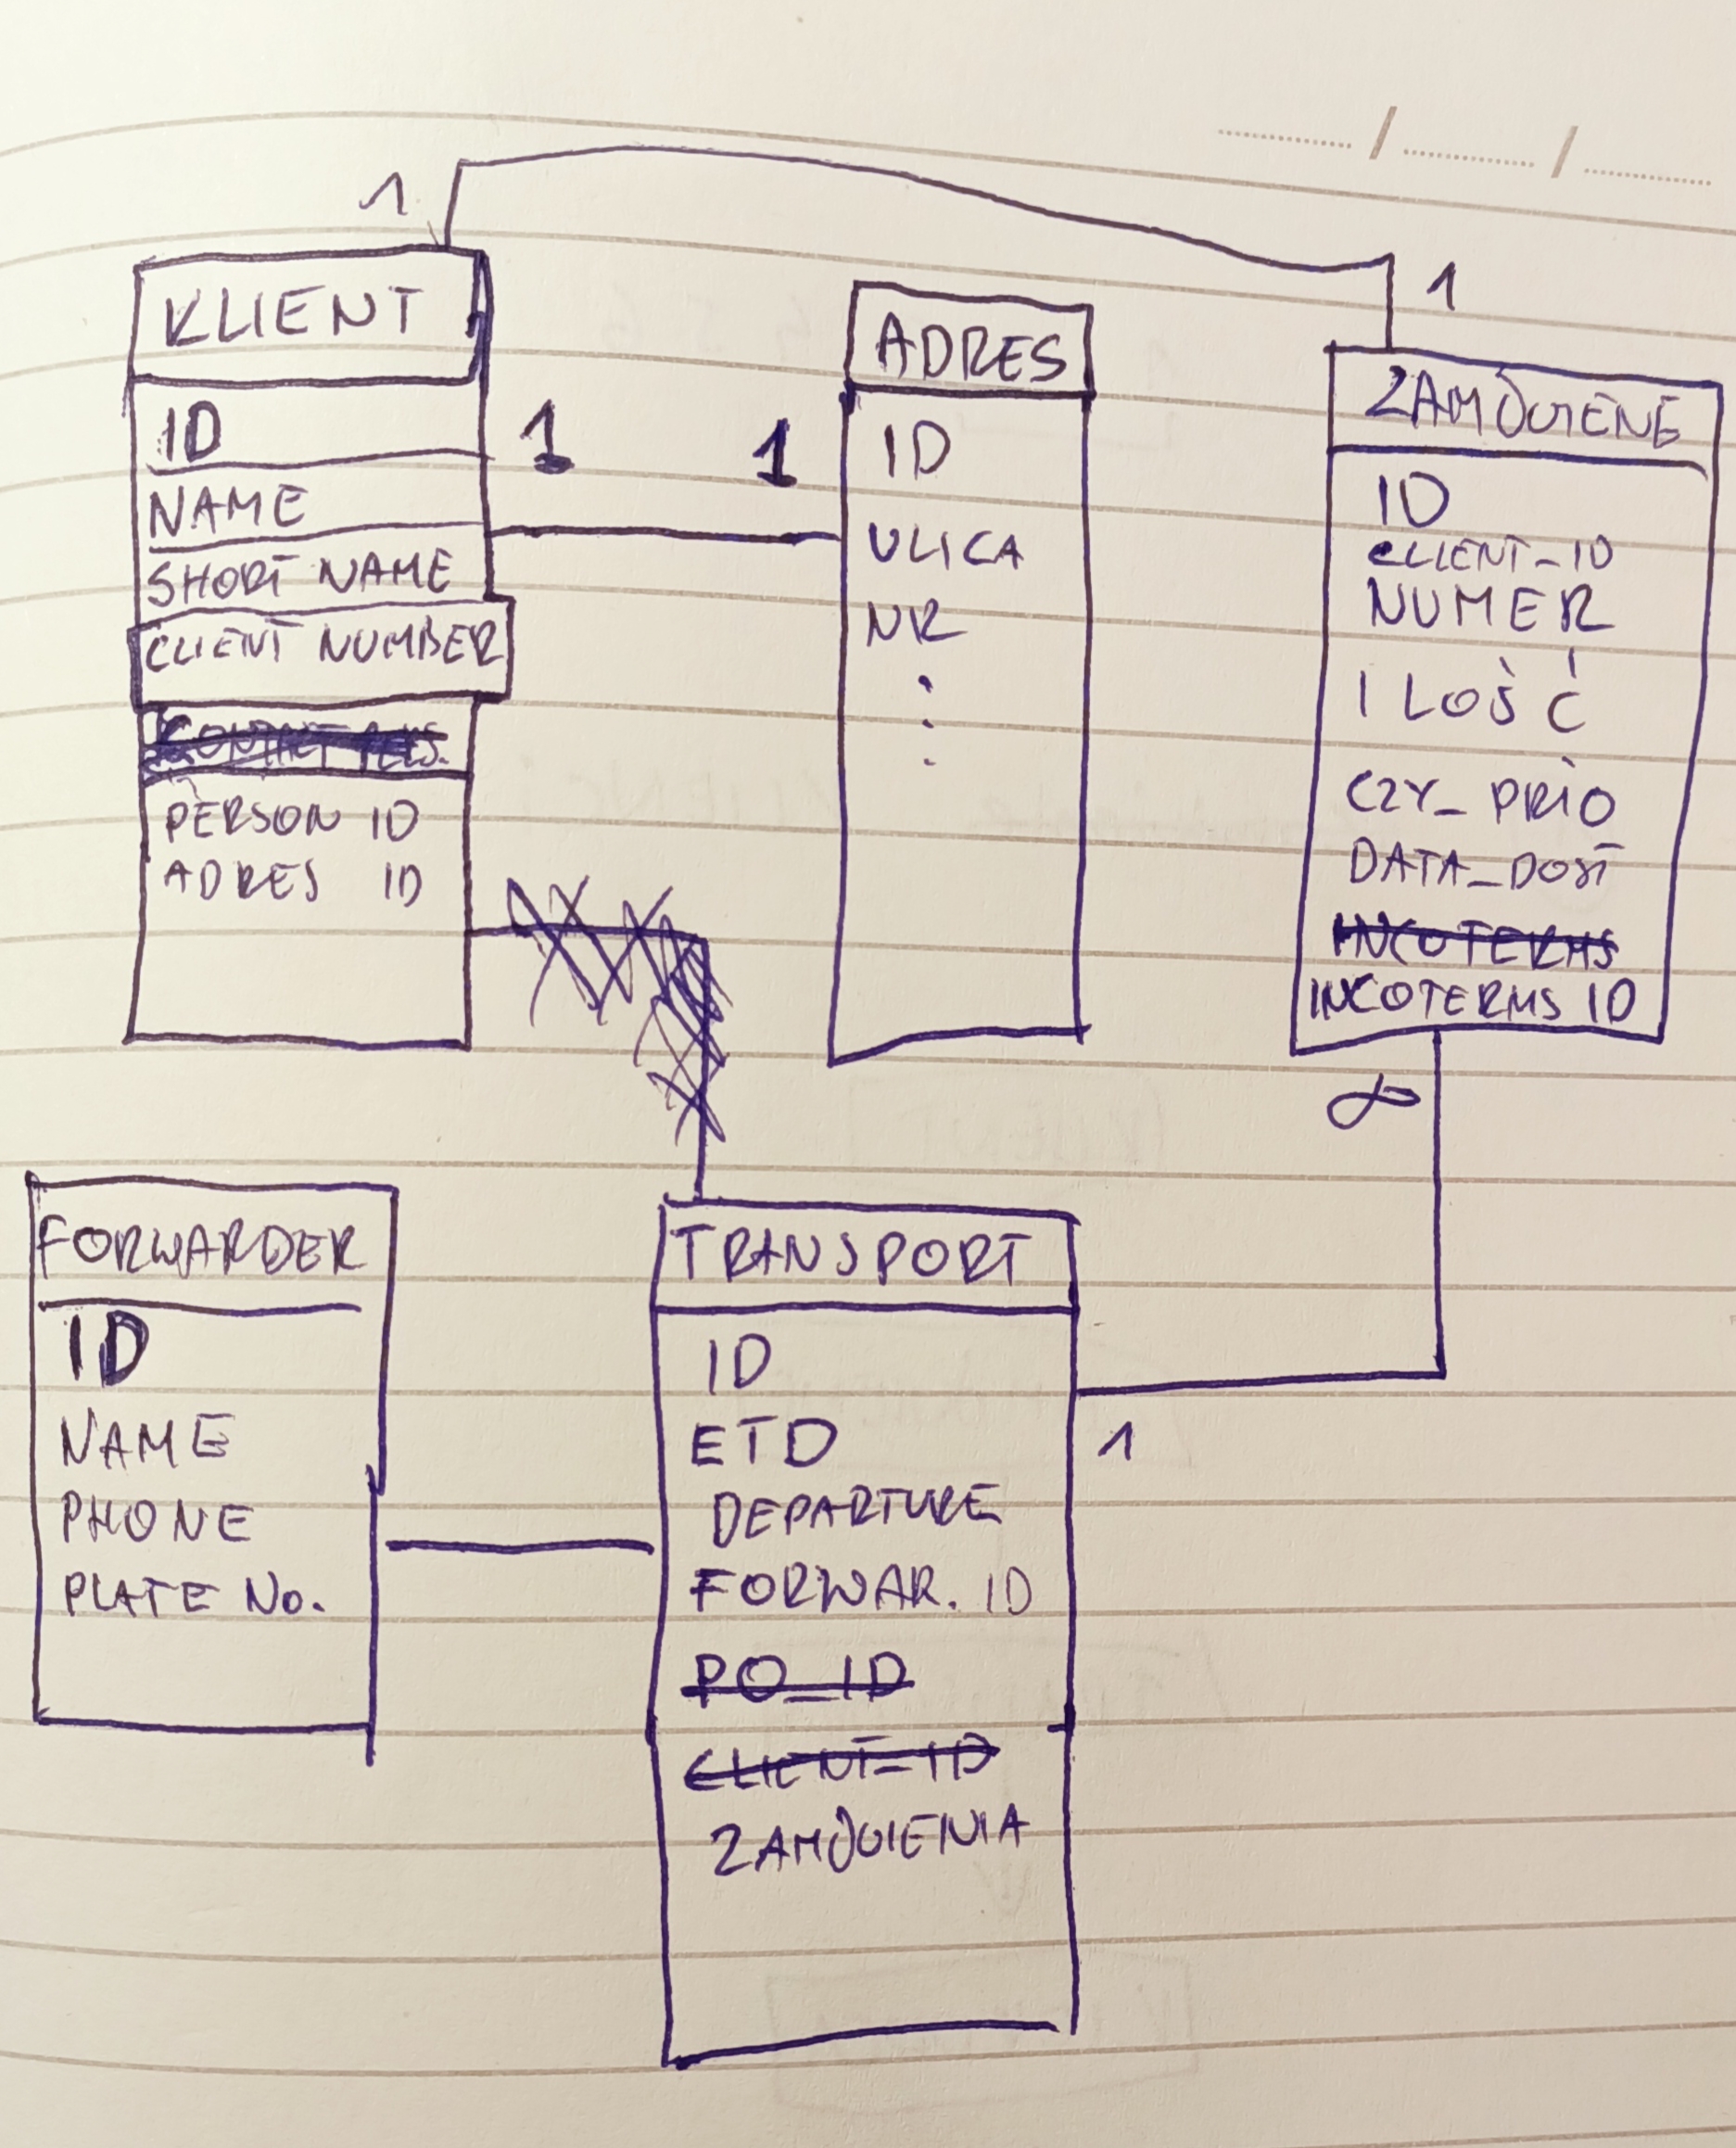 1
KLIENT
ID
NAME
SHORT NAME
CLIENT NUMBER
PERSON ID
ADRES ID
1
1
ADRES
ID
ULICA
NR
1
ZAMÓWIENE
ID
CLIENT_ID
NUMER
ILOŚĆ
CZY_PRIO
DATA_DOST
INCOTERMS
INCOTERMS ID
∞
FORWARDER
ID
NAME
PHONE
PLATE No.
TRANSPORT
ID
ETD
DEPARTURE
FORWAR. ID
PO_ID
CLIENT_ID
ZAMÓWIENIA
1